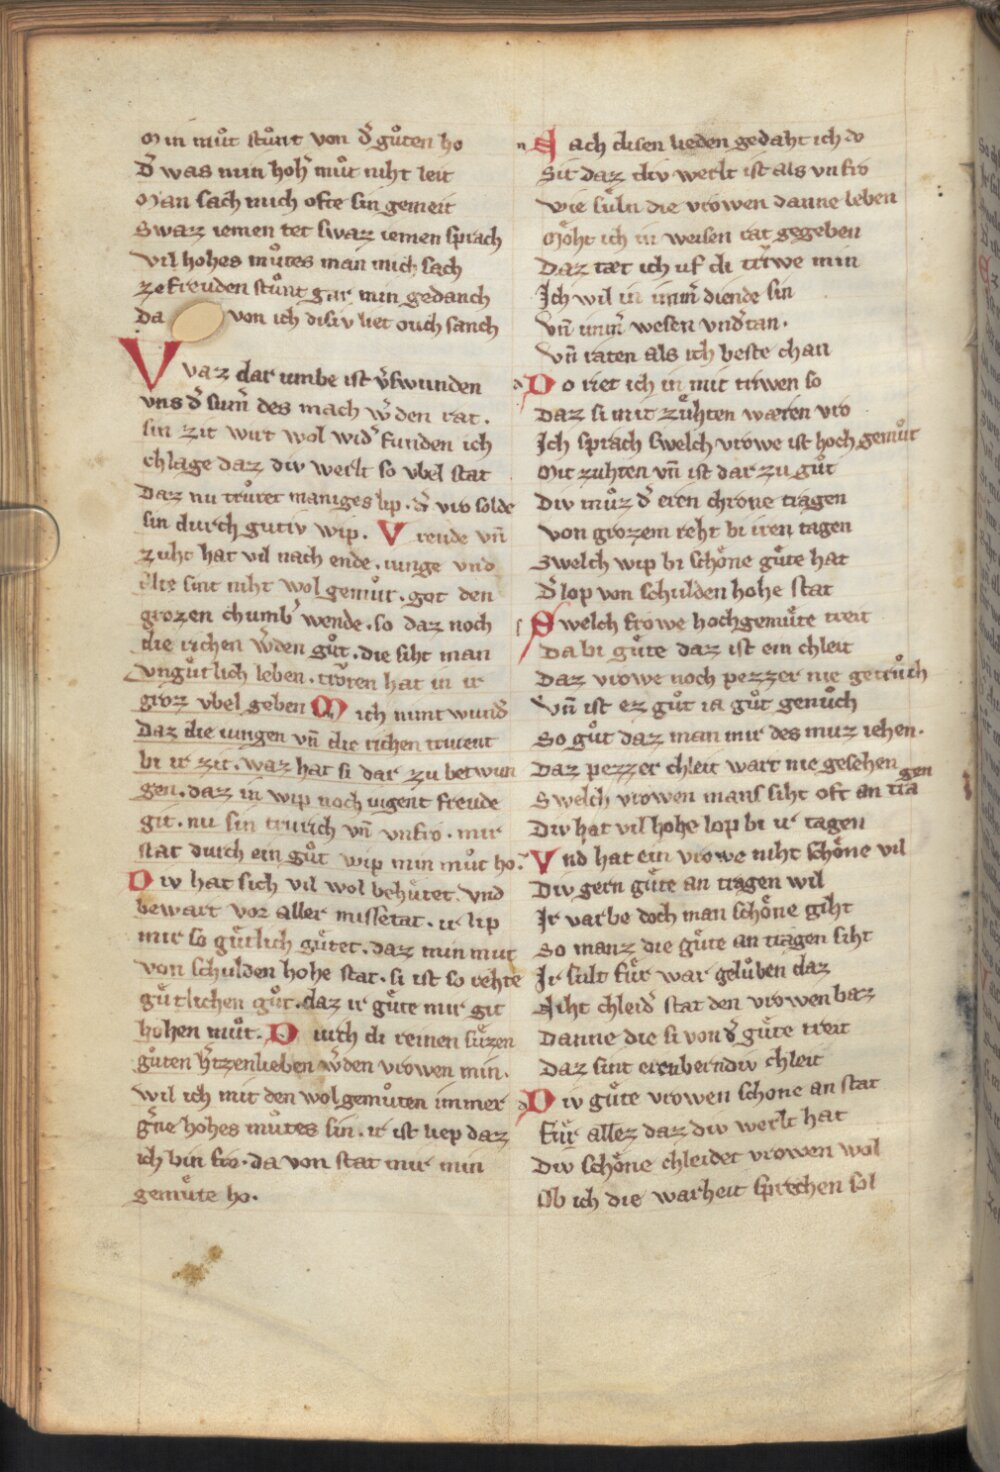 Min mu̍t stu̍nt von d̍ gůten ho
D̍ was min hoh̍ můt niht leit
Man sach mich ofte sin gemeit
Swaz iemen tet swaz iemen sprach
vil hohes můtes man mich sach
ze freuden stůnt gar min gedanch
Da von ich disiv liet ouch sanch
Vvaz dar umbe ist v̍swunden
vns d̍ sum̄ des mach w̍den rat.
sin zit wirt wol wid̍ funden ich
chlage daz div werlt so vbel stat
Daz nu trůret maniges lip. d̍ vro solde
sin durch gutiv wip. Vreude vn̄
zuht hat vil nach ende. iunge vnd
alte sint niht wol gemůt. got den
grozen chumb̍ wende. so daz noch
die richen w̍den gůt. die siht man
vngůtlich leben. trǒren hat in ir
groz vbel geben Mich nimt wund̍
Daz die iungen vn̄ die richen trurent
bi ir zit. waz hat si dar zu betwun
gen. daz in wip noch iugent freude
git. nu sin trurich vn̄ vnfro. mir
stat durch ein gůt wip min můt ho.
Div hat sich vil wol behůtet. vnd
bewart vor aller missetat. ir lip
mir so gůtlich gůtet. daz min mut
von schulden hohe stat. si ist so rehte
gůtlichen gůt. daz ir gůte mir git
hohen můt. Durch di reinen sůzen
gůten h̍tzenlieben w̍den vrowen min.
wil ich mit den wolgemůten immer
g̍ne hohes můtes sin. ir ist liep daz
ich bin fro. da von stat mir min
gemůte ho.
Nach disen lieden gedaht ich do
Sit daz div werlt ist als vnfro
wie sůln die vrowen danne leben
Mǒht ich in weisen rat gegeben
Daz tæt ich uf di triwe min
Ich wil in im̄m̍ diende sin
vn̄ im̄m̍ wesen vnd̍tan.
vn̄ raten als ich beste chan
Do riet ich in mit triwen so
Daz si mit zůhten wæren vro
Ich sprach swelch vrowe ist hoch gemůt
Mit zuhten vn̄ ist dar zu gůt
Div můz d̍ eren chrone tragen
von grozem reht bi iren tagen
Swelch wip bi schǒne gůte hat
D̍ lop von schulden hohe stat
Swelch frowe hochgemůte treit
Da bi gůte daz ist ein chleit
Daz vrowe noch pezzer nie getrůch
Vn̄ ist ez gůt ia gůt genůch
So gůt daz man mir des muz iehen.
Daz pezzer chleit wart nie gesehen
Swelch vrowen mans siht oft an tragen
Div hat vil hohe lop bi ir tagen
Vnd hat ein vrowe niht schǒne vil
Div gern gůte an tragen wil
Ir varbe doch man schǒne giht
So manz die gůte an tragen siht
Ir sult fůr war gelůben daz
Niht chleid̍ stat den vrowen baz
Danne die si von d̍ gůte treit
Daz sint erenberndiv chleit
Div gůte vrowen schone an stat
Fůr allez daz div werlt hat
Div schǒne chleidet vrowen wol
Ob ich die warheit sprechen sol